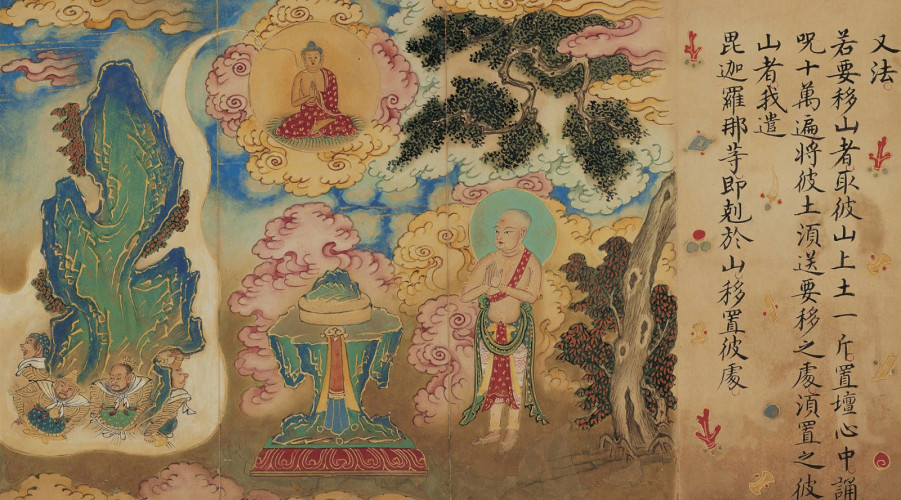 又法
若要移山者取彼山上土一斤置壇心中誦
呪十萬遍將彼土湏送要移之處湏置之彼
山者我遣
毘迦羅那䒭即剋於山移置彼處